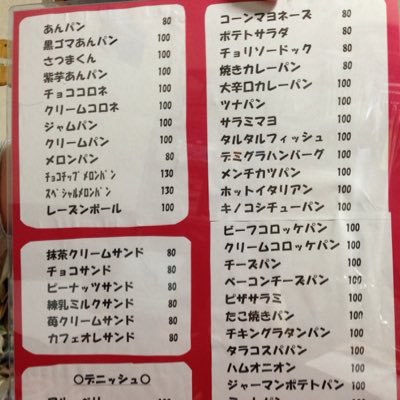 あんパン 80
黒ゴマあんパン 100
さつまくん 100
紫芋あんパン 100
チョココロネ 100
クリームコロネ 100
ジャムパン 100
クリームパン 100
メロンパン 80
チョコチップメロンパン 130
スペシャルメロンパン 130
レーズンボール 100
抹茶クリームサンド 80
チョコサンド 80
ピーナッツサンド 80
練乳ミルクサンド 80
苺クリームサンド 80
カフェオレサンド 80
○デニッシュ○
コーンマヨネーズ 80
ポテトサラダ 100
チョリソードック 100
焼きカレーパン 80
大辛口カレーパン 100
ツナパン 100
サラミマヨ 100
タルタルフィッシュ 100
デミグラハンバーグ 100
メンチカツパン 100
ホットイタリアン 100
キノコシチューパン 100
ビーフコロッケパン 100
クリームコロッケパン 100
チーズパン 100
ベーコンチーズパン 100
ピザサラミ 100
たこ焼きパン 100
チキングラタンパン 100
タラコスパパン 100
ハムオニオン 100
ジャーマンポテトパン 100